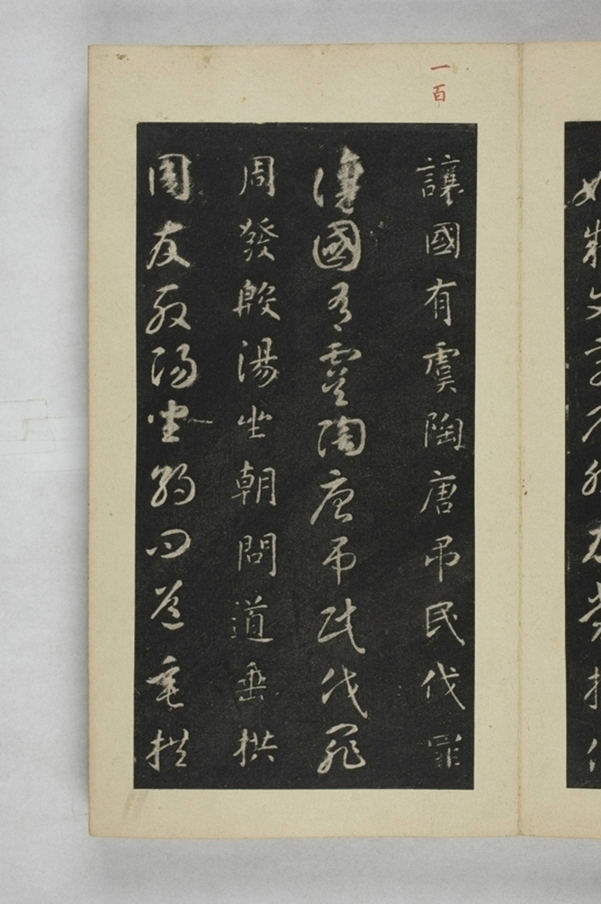 一百
讓國有虞陶唐弔民伐罪
讓國有虞陶唐弔民伐罪
周發殷湯坐朝問道垂拱
周發殷湯坐朝問道垂拱